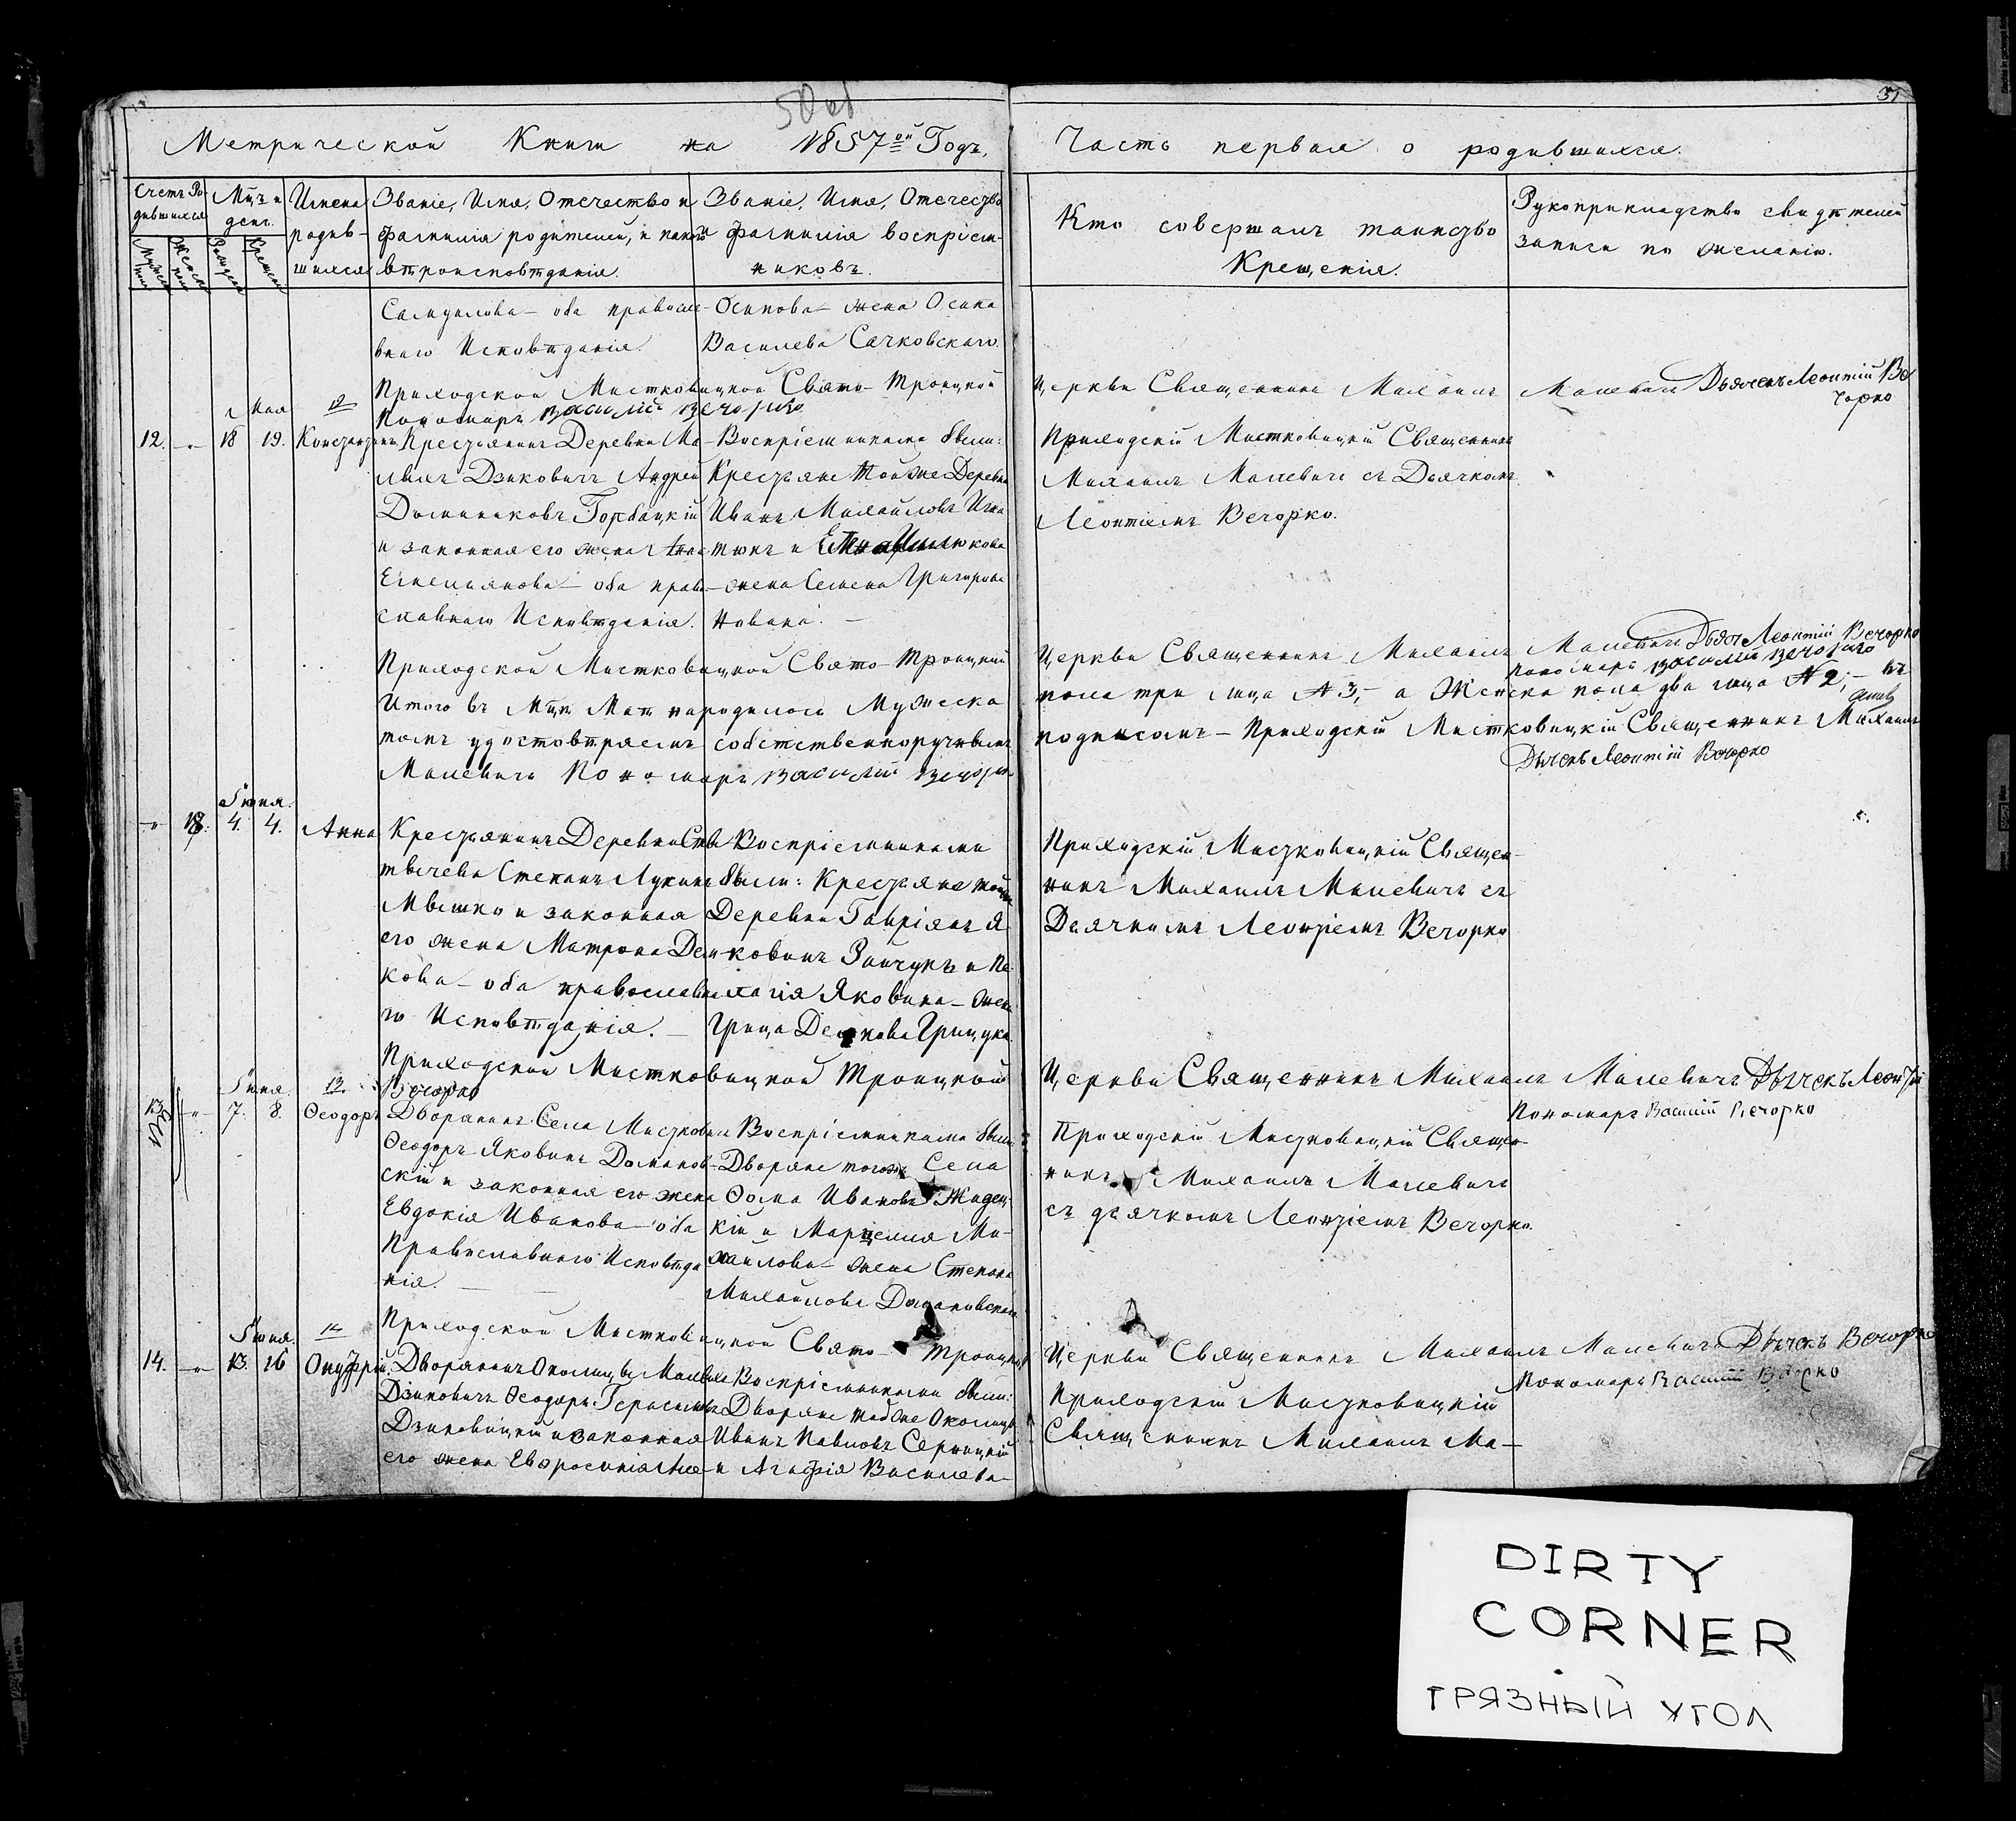 50 об
31
Метрической Книги на 1857ой Годъ,
Часть первая о родившихся.
Счетъ Ро-
дившихся
Мцъ и
день.
Имена
родив-
шихся
Званіе, Имя, Отечество и
Фамилія родителей, и какого
вѣроисповѣданія.
Званіе, Имя, Отечество
и Фамилія воспріем-
никовъ.
Кто совершалъ таинство
Крещенія.
Рукоприкладство свидѣтелей
записи по желанію.
Самуилова – оба правосла-
внаго Исповѣданія.
Осипова – жена Осипа
Василева Сачковскаго.
Приходской Мистковицкой Свято-Троицкой
Церкви Священникъ Михаилъ Малевичъ Дьячекъ Леонтій Ве
чорко
Пономарь Василій Вечорко
Мая
12
12. -"- 18 19. Константинъ
Крестьянинъ Деревни Ма-
лыхъ Дзиковичъ Андрей
Доминиковъ Горбацкій
и законная его жена Анна
Емельянова – оба право-
славнаго Исповѣданія.
Воспріемниками были:
Крестьяне той же Деревни
Иванъ Михайловъ Игна
тюкъ и
жена Семена Григорьева
Приходскій Мистковицкій Священникъ
Михаилъ Малевичъ съ Дьячкомъ
Леонтіемъ Вечорко.
Приходской Мистковицкой Свято-Троицкой
Церкви Священникъ Михаилъ Малевичъ Дьячекъ Леонтій Вечорко
Пономарь Василій Вечорко
Итого въ Мцѣ Маѣ народилось Мужеска
пола три лица № 3, – а Женска пола два лица № 2, – въ
томъ удостовѣряемъ собственноручнымъ
подписомъ – Приходскій Мистковицкій Священникъ Михаилъ
Малевичъ Пономарь Василій Вечорко
Дьячекъ Леонтій Вечорко
Іюня.
-"- 4. 4. Анна
Крестьянинъ Деревни Ста
Степанъ Лукинъ
Мышко и законная
его жена Матрона Дем
кова – оба православна
го Исповѣданія. –
Воспріемниками
были: Крестьяне той же
Деревни Гавріилъ Я
ковинъ Зайчукъ и Пе
лагія Яковина – жена
Грица Демкова Грицука
Приходскій Мистковицкій Священ-
никъ Михаилъ Малевичъ съ
Дьячкомъ Леонтіемъ Вечорко
Приходской Мистковицкой Троицкой
Церкви Священникъ Михаилъ Малевичъ Дьячекъ Леонтій
Вечорко
Пономарь Василій Вечорко
Іюня
13
13. -"- 7. 8. Ѳеодоръ
Дворянинъ Села Мистковичъ
Ѳеодоръ Яковинъ Доманов-
скій и законная его жена
Евдокія Иванова – оба
Православнаго Исповѣда
нія. –
Воспріемниками были
Дворяне тогожъ Села
Ѳома Ивановъ Жиден-
кій и Марцелля Ми-
хаилова – жена Степана
Михайлова Домановскаго
Приходскій Мистковицкій Священ-
никъ Михаилъ Малевичъ
съ дьячкомъ Леонтіемъ Вечорко.
Приходской Мистковицкой Свято-Троицкой
Церкви Священникъ Михаилъ Малевичъ Дьячекъ Вечорко
Пономарь Василій Вечорко
Іюня.
14
14. -"- 13. 16 Онуфрій.
Дворянинъ Околицы Малыхъ
Дзиковичъ Ѳеодоръ Герасимовъ
Дзиковицкій и законная
его жена Евфросинія Але-
Воспріемниками были:
Дворяне той же Околицы
Иванъ Павловъ Серницкій
и Агафія Василева –
Приходскій Мистковицкій
Священникъ Михаилъ Ма-
DIRTY
CORNER
ГРЯЗНЫЙ УГОЛ